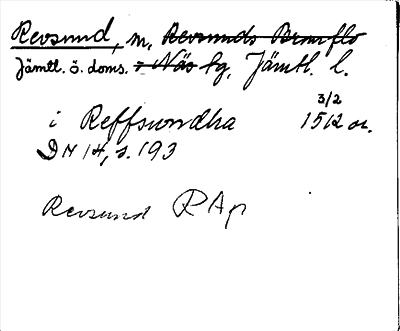 Revsund, m. Revsunds Brunflo
Jämtl. ö. doms. o Näs tg, Jämtl. l.
3/2
i Reffswndha 1512 or.
DN 14, s. 193
Revsund RAp